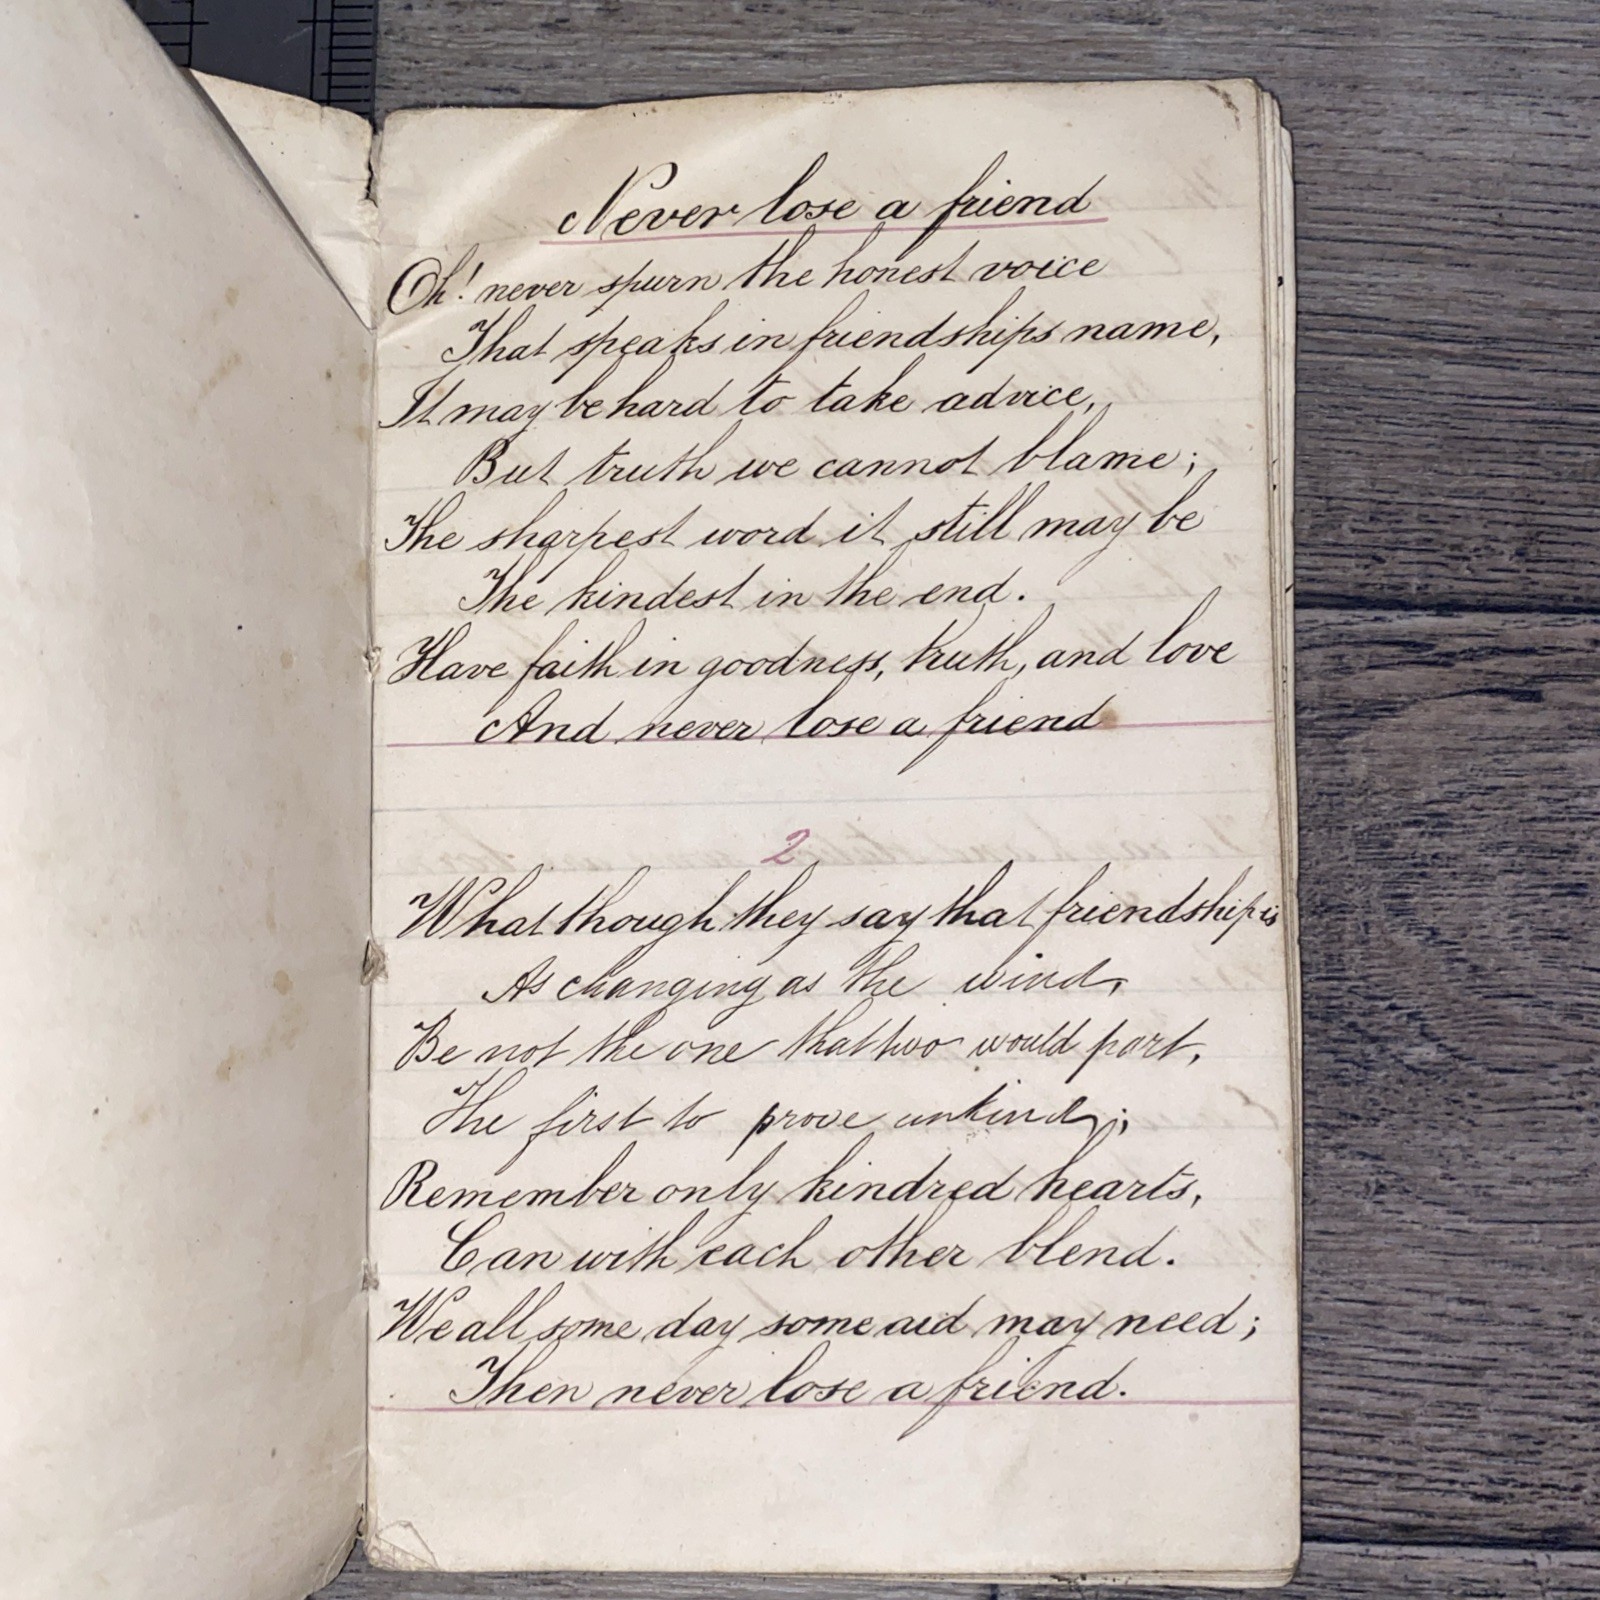 Never lose a friend
Oh! never spurn the honest voice
That speaks in friendships name,
It may be hard to take advice,
But truth we cannot blame;
The sharpest word it still may be
The kindest in the end.
Have faith in goodness, truth, and love
And never lose a friend
2
What though they say that friendship is
As changing as the wind,
Be not the one that two would part,
The first to prove unkind;
Remember only kindred hearts,
Can with each other blend.
We all some day some aid may need;
Then never lose a friend.